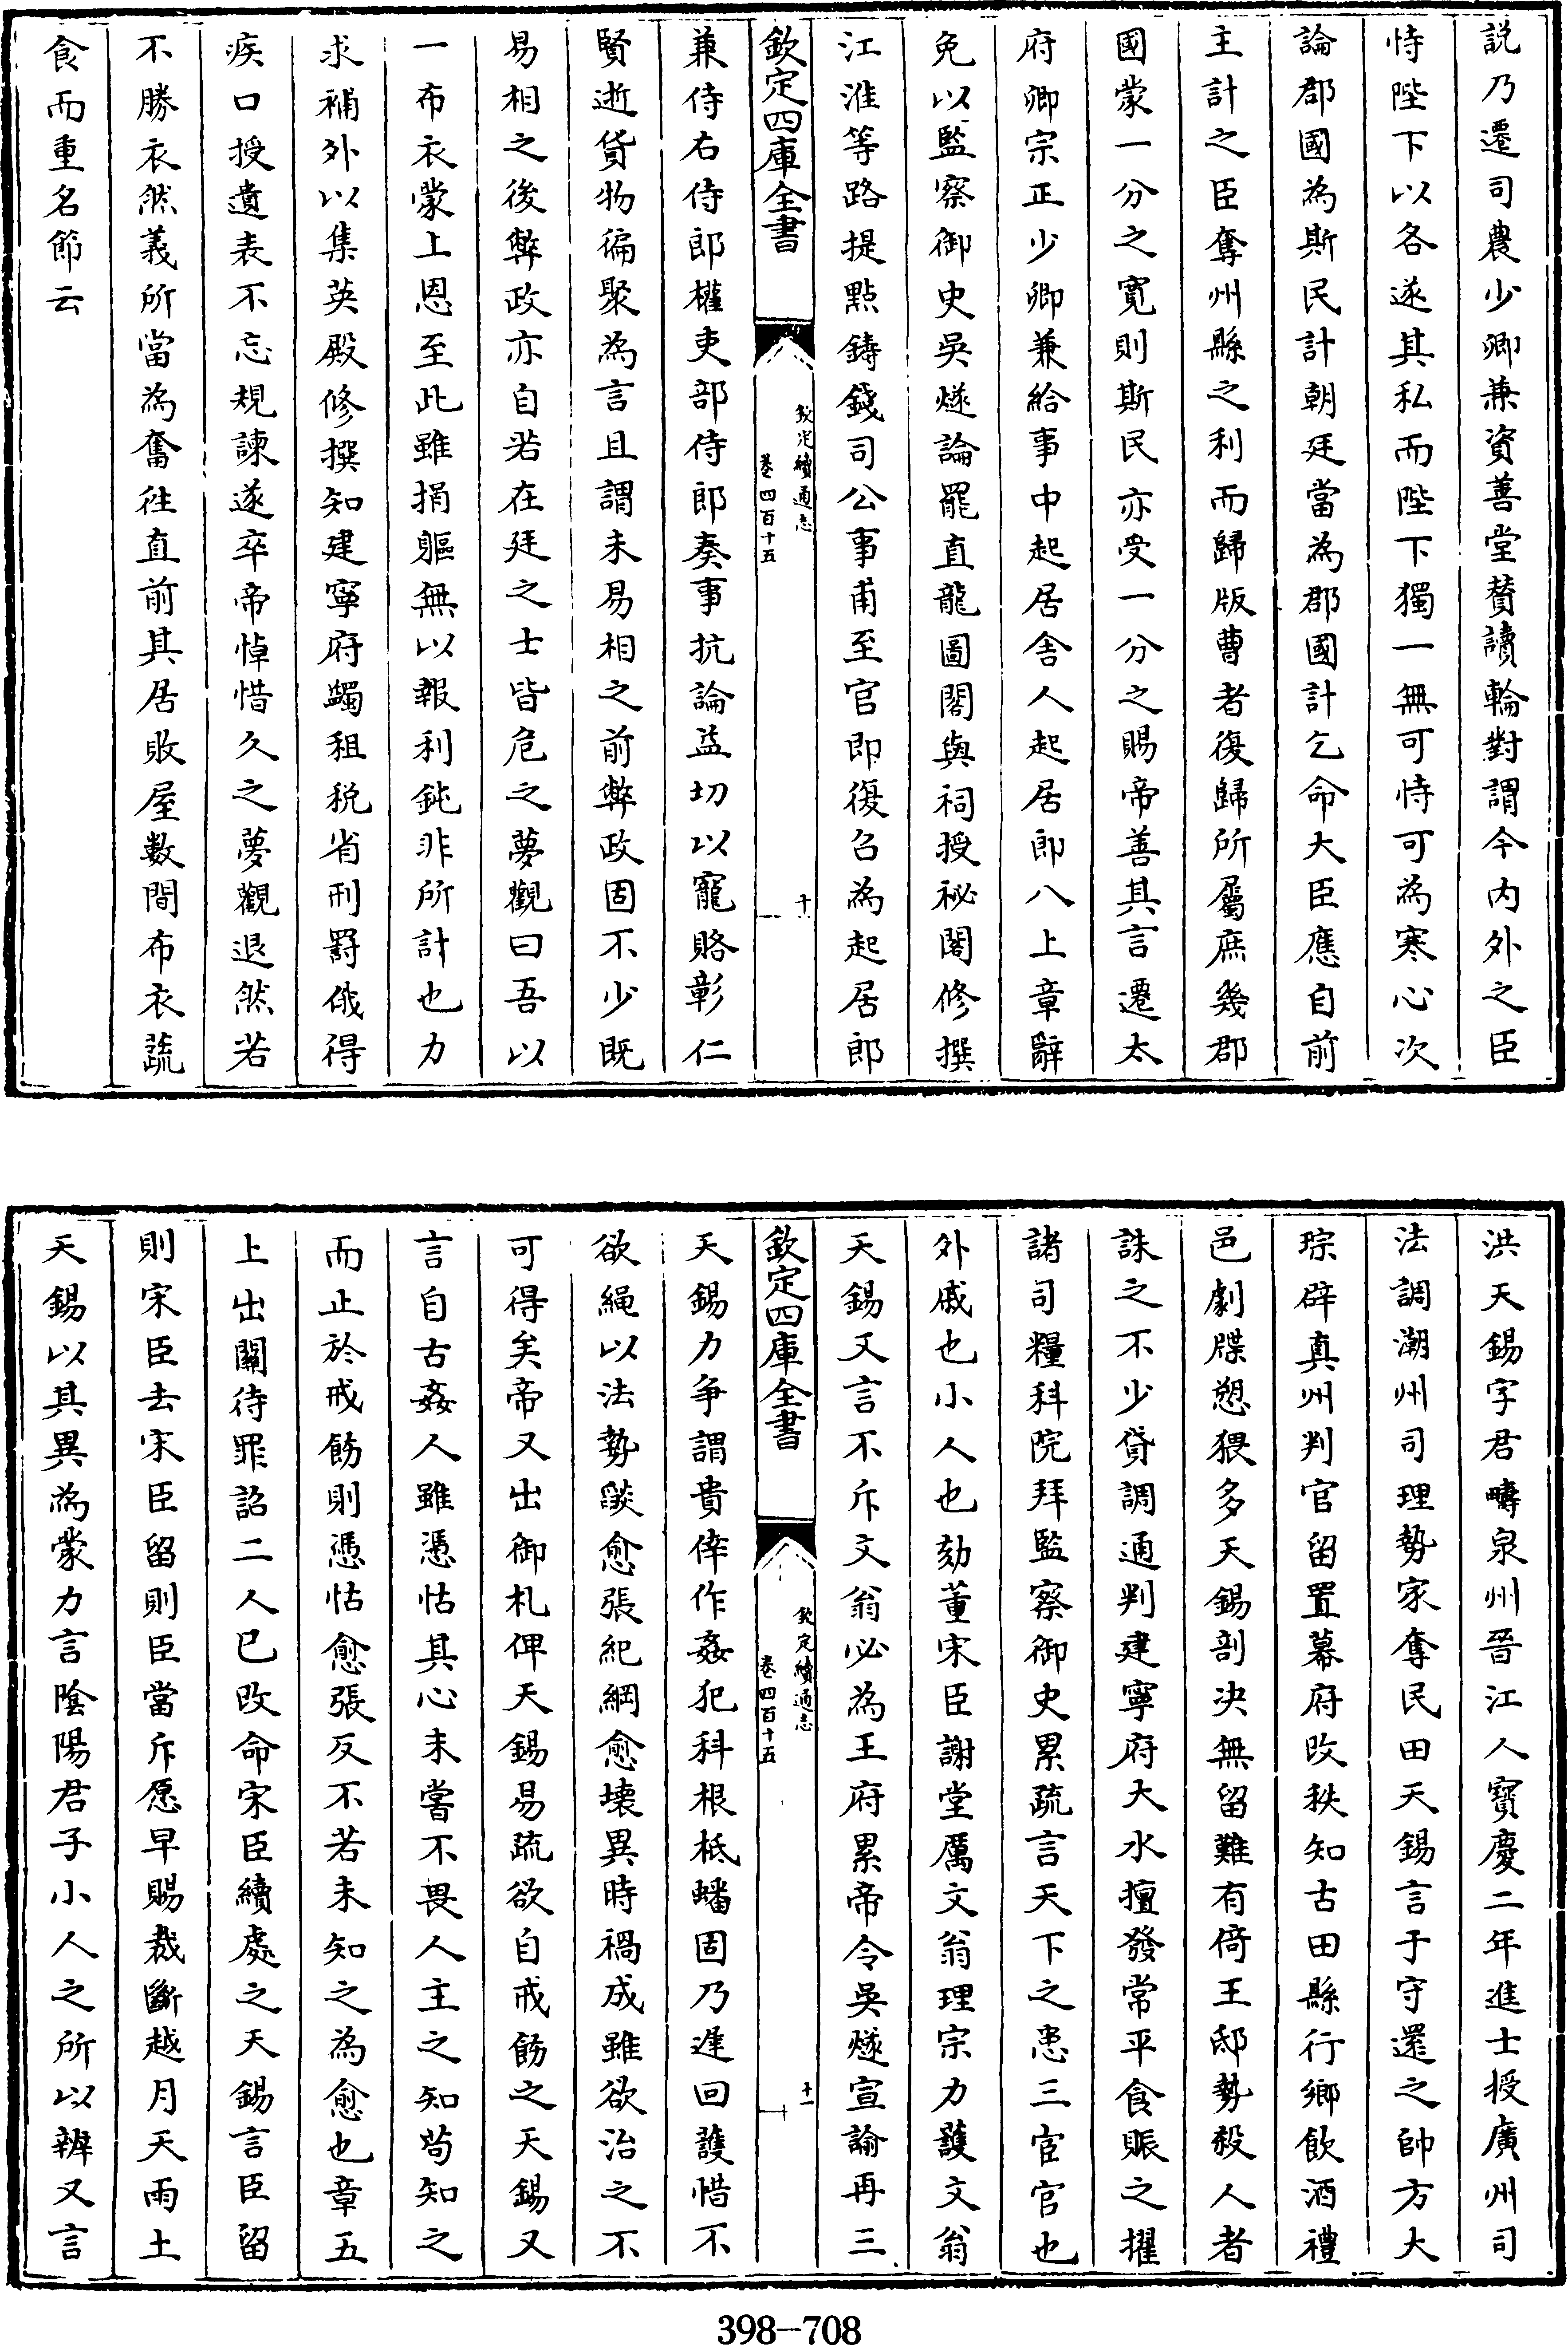 説乃遷司農少卿兼資善堂賛讀輪對謂今内外之臣
恃陛下以各遂其私而陛下獨一無可恃可為寒心次
論郡國為斯民計朝廷當為郡國計乞命大臣應自前
主計之臣奪州縣之利而歸版曹者復歸所屬庶幾郡
國蒙一分之寛則斯民亦受一分之賜帝善其言遷太
府卿宗正少卿兼給事中起居舎人起居郎八上章辭
免以監察御史吳燧論罷直龍圖閣與祠授祕閣修撰
江淮等路提點鑄錢司公事甫至官即復召為起居郎
欽定四庫全書
欽定續通志
卷四百十五
十
兼侍右侍郎權吏部侍郎奏事抗論益切以寵賂彰仁
賢逝貨物徧聚為言且謂未易相之前弊政固不少既
易相之後弊政亦自若在廷之士皆危之夢觀曰吾以
一布衣蒙上恩至此雖捐軀無以報利鈍非所計也力
求補外以集英殿修撰知建寧府蠲租税省刑罸俄得
疾口授遺表不忘規諫遂卒帝悼惜久之夢觀退然若
不勝衣然義所當為奮往直前其居敗屋數間布衣蔬
食而重名節云
洪天錫字君疇泉州晉江人寶慶二年進士授廣州司
法調潮州司理勢家奪民田天錫言于守還之帥方大
琮辟真州判官留置幕府改秩知古田縣行鄉飲酒禮
邑劇牒愬猥多天錫剖決無留難有倚王邸勢殺人者
誅之不少貸調通判建寧府大水擅發常平食賑之擢
諸司糧科院拜監察御史累疏言天下之患三宦官也
外戚也小人也劾董宋臣謝堂厲文翁理宗力護文翁
天錫又言不斥文翁必為王府累帝令吳燧宣諭再三
欽定四庫全書
欽定續通志
卷四百十五
十一
天錫力争謂貴倖作姦犯科根柢蟠固乃遲回護惜不
欲繩以法勢燄愈張紀綱愈壊異時禍成雖欲治之不
可得矣帝又出御札俾天錫易疏欲自戒飭之天錫又
言自古姦人雖憑怙其心未嘗不畏人主之知茍知之
而止於戒飭則憑怙愈張反不若未知之為愈也章五
上出關待罪詔二人已改命宋臣續處之天錫言臣留
則宋臣去宋臣留則臣當斥愿早賜裁斷越月天雨土
天錫以其異為蒙力言陰陽君子小人之所以辨又言
398-708